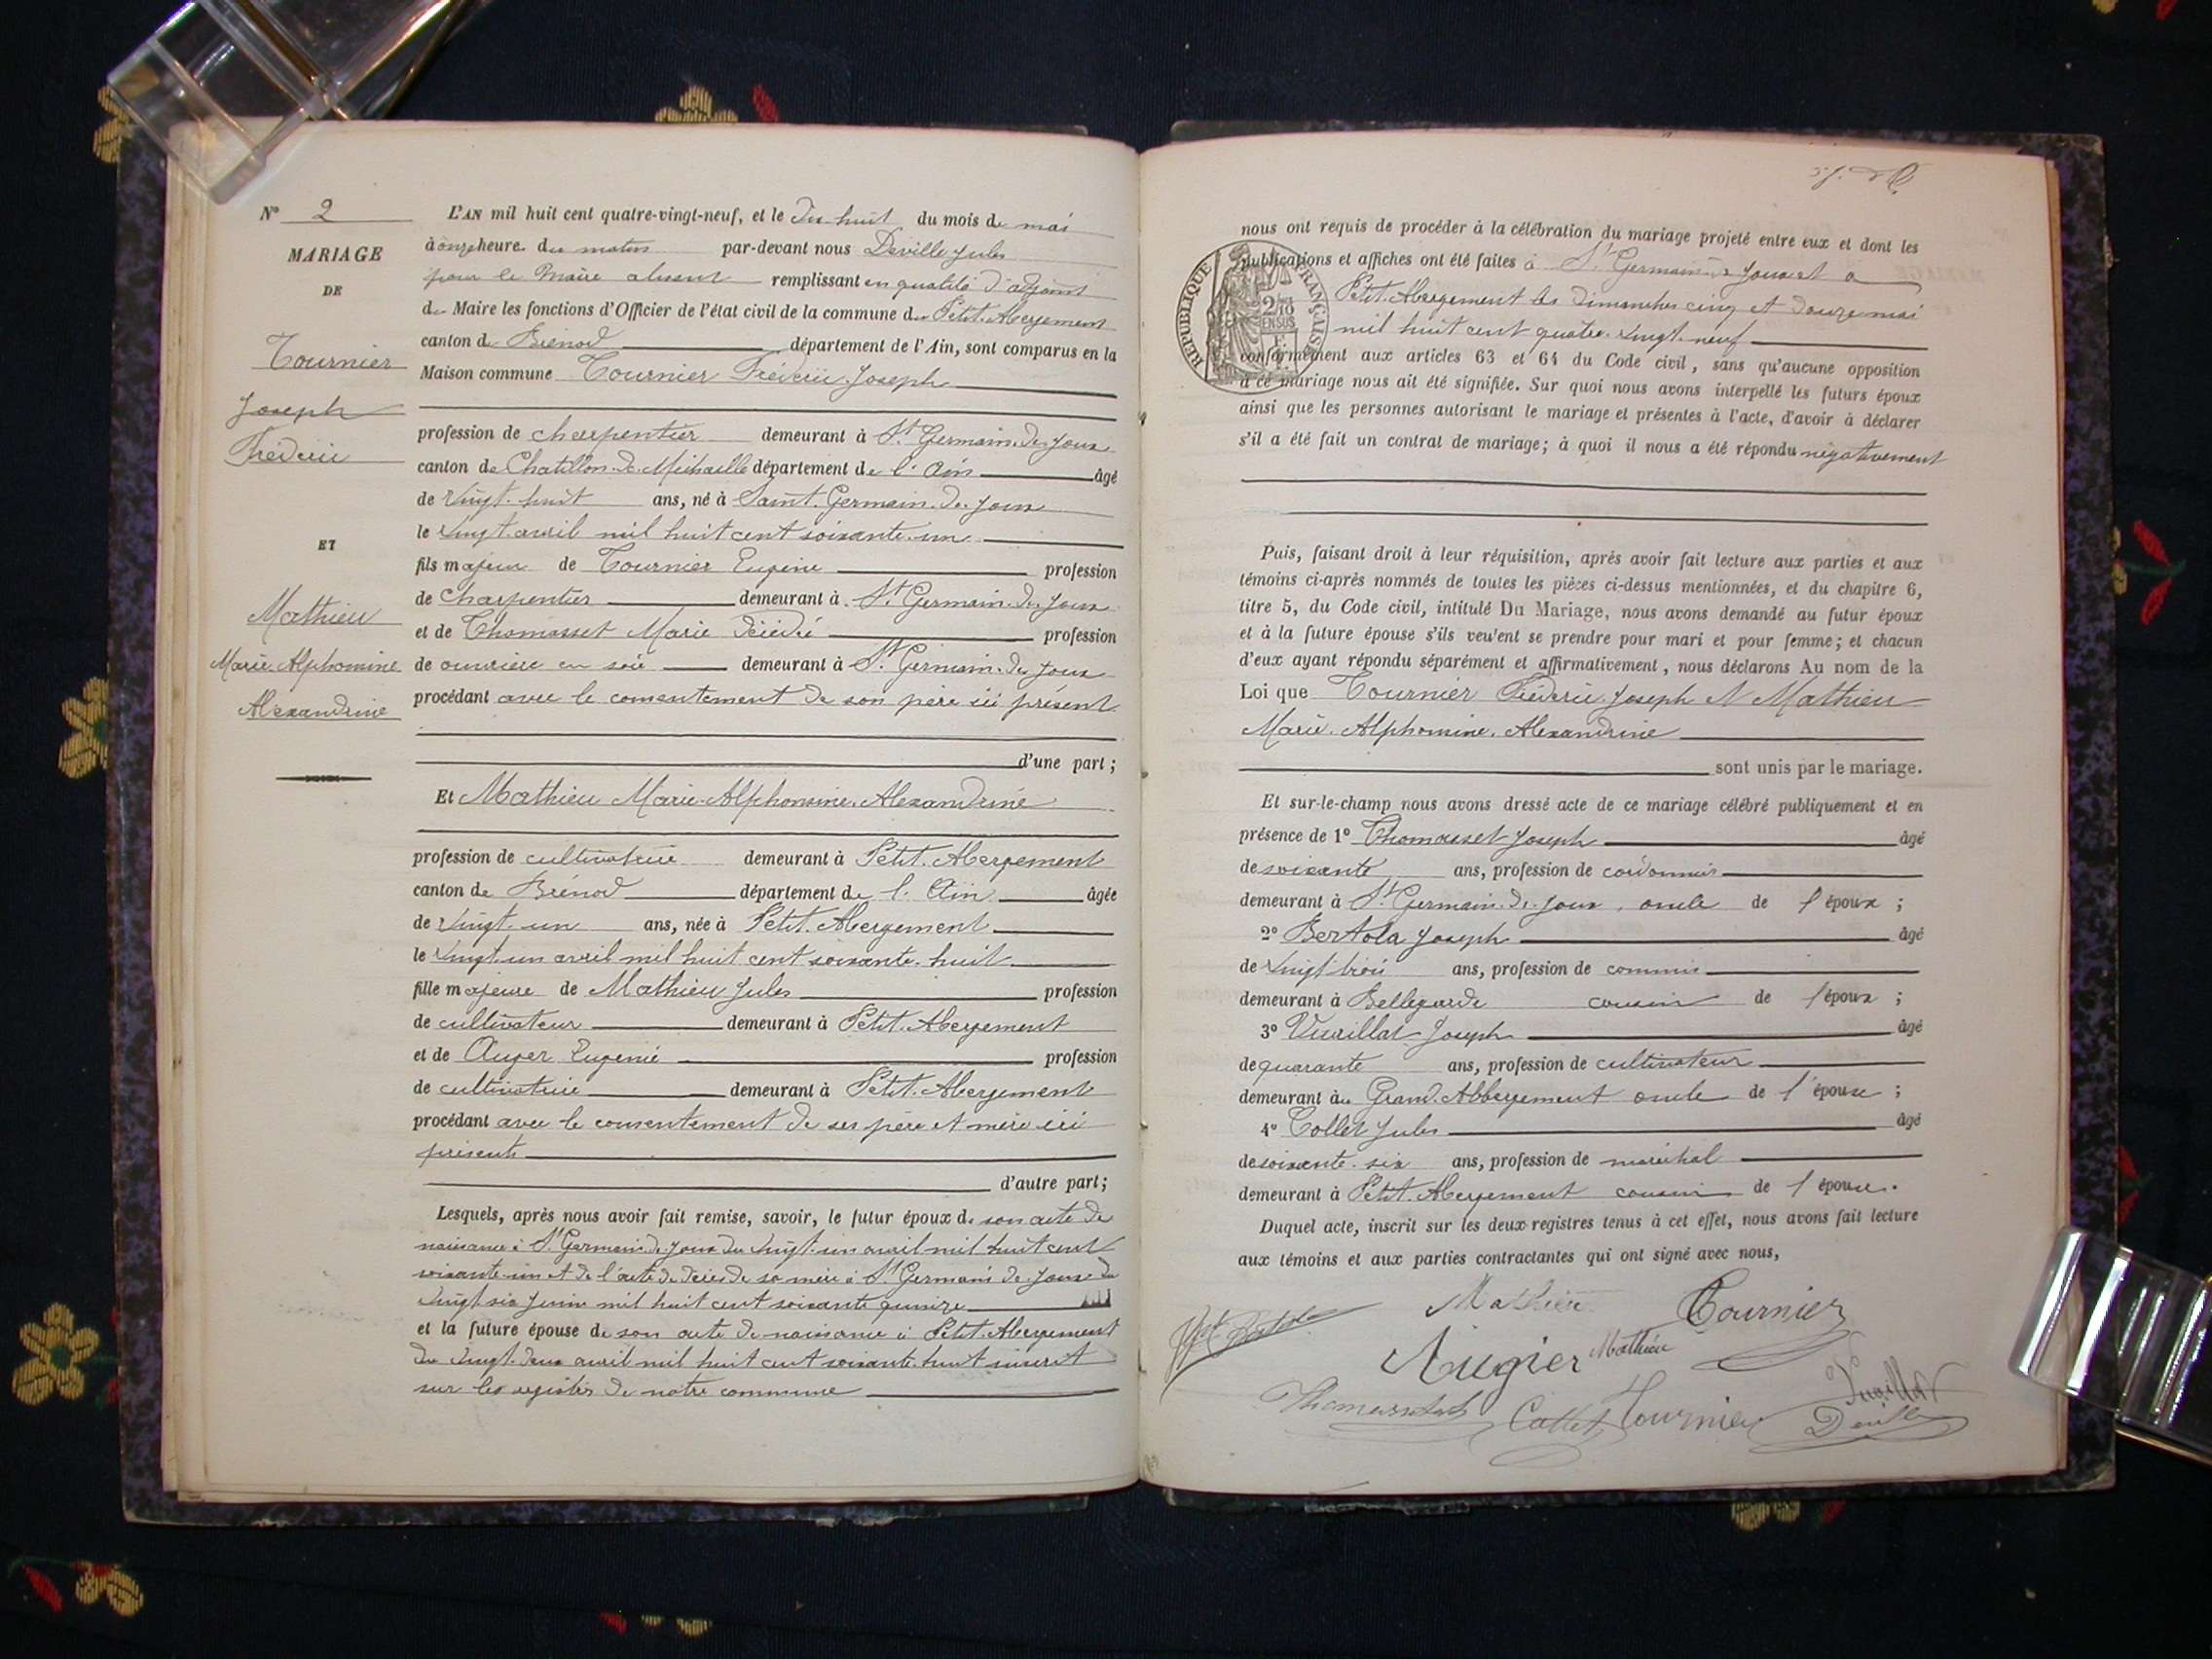 N° 2
MARIAGE
DE
Tournier
Joseph
Frédéric
ET
Mathieu
Marie Alphonsine
Alexandrine
L'AN mil huit cent quatre-vingt-neuf, et le dix-huit du mois de mai
à onze heure du matin par-devant nous Deville Jules
pour le Maire absent remplissant en qualité d'adjoint
du Maire les fonctions d'Officier de l'état civil de la commune du Petit-Abergement
canton de Brénod département de l'Ain, sont comparus en la
Maison commune Tournier Fréderic Joseph
profession de charpentier demeurant à St Germain-de-Joux
canton de Chatillon-de-Michaille département de l'Ain âgé
de vingt-huit ans, né à Saint-Germain-de-Joux
le vingt avril mil huit cent soixante-un
fils majeur de Tournier Eugène profession
de charpentier demeurant à St Germain-de-Joux
et de Thomasset Marie décédé profession
de ouvrière en soie demeurant à St Germain-de-Joux
procédant avec le consentement de son père ici présent
d'une part ;
Et Mathieu Marie-Alphonsine Alexandrine
profession de cultivatrice demeurant à Petit-Abergement
canton de Brénod département de l'Ain âgée
de vingt-un ans, née à Petit-Abergement
le vingt-un avril mil huit cent soixante-huit
fille majeure de Mathieu Jules profession
de cultivateur demeurant à Petit-Abergement
et de Auger Eugenie profession
de cultivatrice demeurant à Petit-Abergement
procédant avec le consentement de ses père et mère ici
présents
d'autre part ;
Lesquels, après nous avoir fait remise, savoir, le futur époux de son acte de
naissance à St Germain-de-Joux du vingt-un avril mil huit cent
soixante-un et de l'acte de décès de sa mère à St Germain-de-Joux du
vingt-six juin mil huit cent soixante quinze
et la future épouse de son acte de naissance à Petit-Abergement
du vingt-deux avril mil huit cent soixante-huit inscrit
sur les registres de notre commune
nous ont requis de procéder à la célébration du mariage projeté entre eux et dont les
publications et affiches ont été faites à St Germain-de-Joux et a
Petit-Abergement les dimanches cinq et douze mai
mil huit cent quatre-vingt-neuf
REPUBLIQUE FRANÇAISE
EN SUS
conformément aux articles 63 et 64 du Code civil, sans qu'aucune opposition
à ce mariage nous ait été signifiée. Sur quoi nous avons interpellé les futurs époux
ainsi que les personnes autorisant le mariage et présentes à l'acte, d'avoir à déclarer
s'il a été fait un contrat de mariage; à quoi il nous a été répondu négativement
Puis, faisant droit à leur réquisition, après avoir fait lecture aux parties et aux
témoins ci-après nommés de toutes les pièces ci-dessus mentionnées, et du chapitre 6,
titre 5, du Code civil, intitulé Du Mariage, nous avons demandé au futur époux
et à la future épouse s'ils veulent se prendre pour mari et pour femme; et chacun
d'eux ayant répondu séparément et affirmativement, nous déclarons Au nom de la
Loi que Tournier Fréderic Joseph et Mathieu
Marie-Alphonsine-Alexandrine
sont unis par le mariage.
Et sur-le-champ nous avons dressé acte de ce mariage célébré publiquement et en
présence de 1° Thomasset Joseph âgé
de soixante ans, profession de cordonnier
demeurant à St Germain-de-Joux, oncle de l'époux ;
2° Bertola Joseph âgé
de vingt trois ans, profession de commis
demeurant à Bellegarde cousin de l'époux ;
3° Vuaillat Joseph âgé
de quarante ans, profession de cultivateur
demeurant au Grand-Abbergement oncle de l'épouse ;
4° Collet Jules âgé
de soixante-six ans, profession de maréchal
demeurant à Petit-Abergement cousin de l'épouse.
Duquel acte, inscrit sur les deux registres tenus à cet effet, nous avons fait lecture
aux témoins et aux parties contractantes qui ont signé avec nous,
Mathieu Tournier
Bertola
Augier Mathieu
Thomasset Collet Tournier Vuaillat
Deville